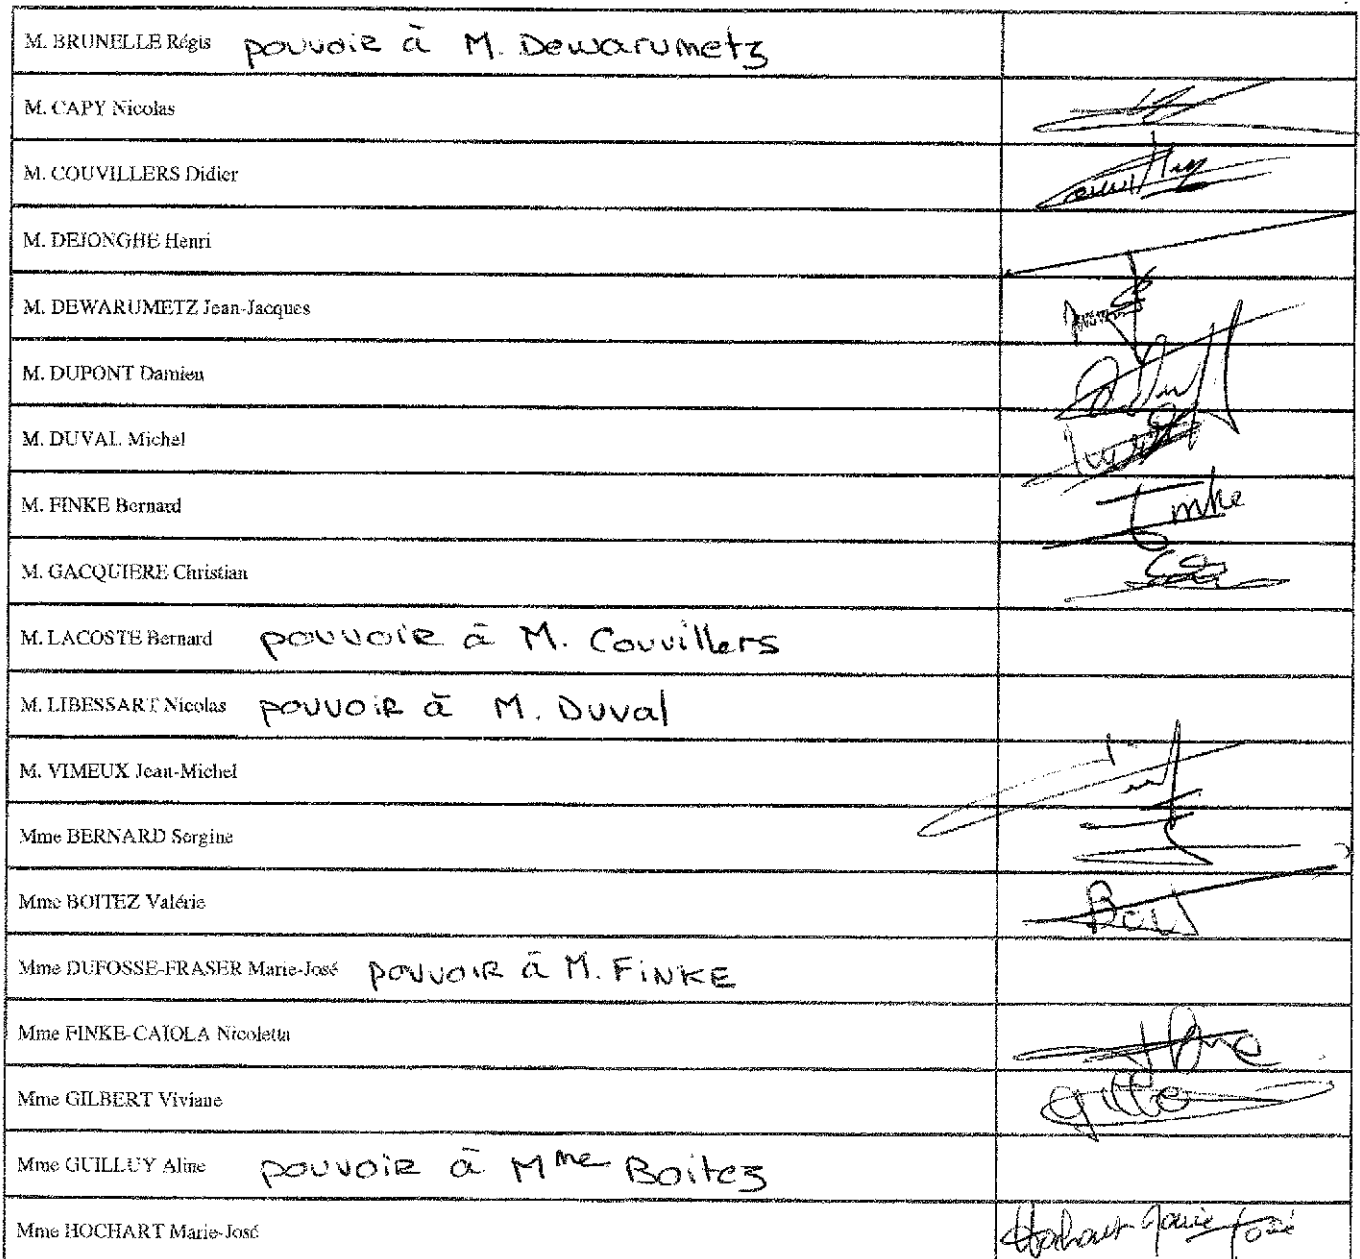 M. BRUNELLE Régis pouvoir à M. Dewarumetz
M. CAPY Nicolas
M. COUVILLERS Didier
M. DEJONGHE Henri
M. DEWARUMETZ Jean-Jacques
M. DUPONT Damien
M. DUVAL Michel
M. FINKE Bernard Finke
M. GACQUIERE Christian
M. LACOSTE Bernard pouvoir à M. Couvillers
M. LIBESSART Nicolas pouvoir à M. Duval
M. VIMEUX Jean-Michel
Mme BERNARD Sergine
Mme BOITEZ Valérie
Mme DUFOSSE-FRASER Marie-José pouvoir à M. FINKE
Mme FINKE-CAIOLA Nicoletta
Mme GILBERT Viviane
Mme GUILLUY Aline pouvoir à Mme Boitez
Mme HOCHART Marie-José Hochart Marie José